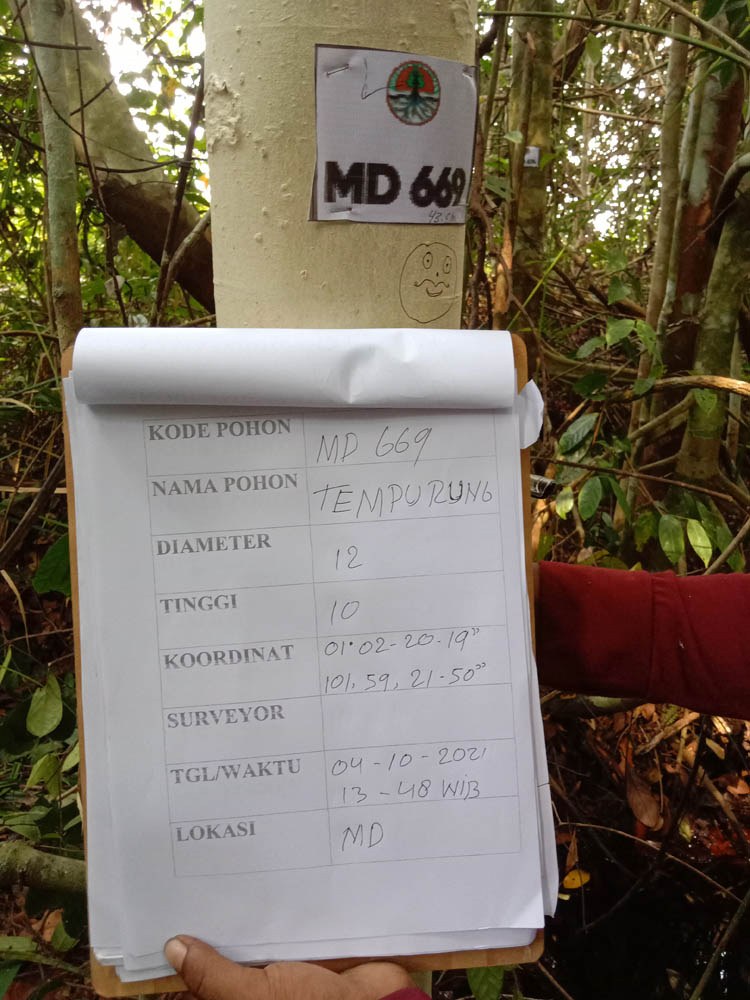 MD 669
43.cm
KODE POHON MD 669
NAMA POHON TEMPURUNG
DIAMETER 12
TINGGI 10
KOORDINAT 01° 02-20-19"
101, 59, 21-50"
SURVEYOR
TGL/WAKTU 04-10-2021
13-48 WIB
LOKASI MD